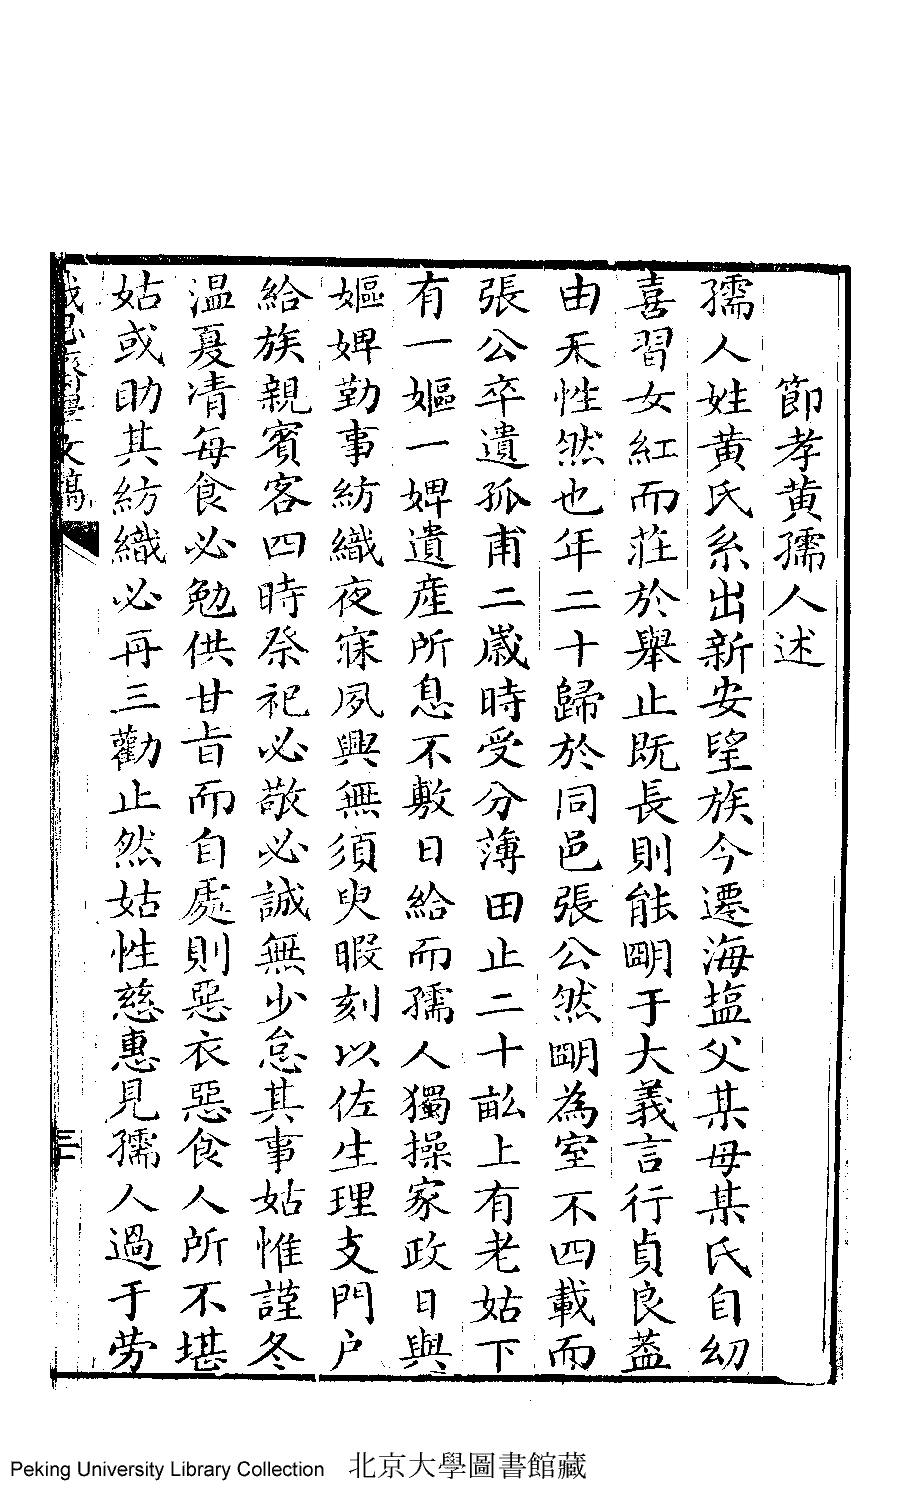 節孝黄孺人述
孺人姓黄氏系出新安望族今遷海塩父某母某氏自幼
喜習女紅而莊於舉止既長則能朙于大義言行貞良葢
由天性然也年二十歸於同邑張公然朙為室不四載而
張公卒遺孤甫二歲時受分薄田止二十畝上有老姑下
有一嫗一婢遺產所息不敷日給而孺人獨操家政日與
嫗婢勤事紡織夜寐夙興無須臾暇刻以佐生理支門户
給族親賓客四時祭祀必敬必誠無少怠其事姑惟謹冬
温夏凊每食必勉供甘旨而自處則惡衣惡食人所不堪
姑或助其紡織必再三勸止然姑性慈惠見孺人過于劳
文稿
Peking University Library Collection 北京大學圖書館藏